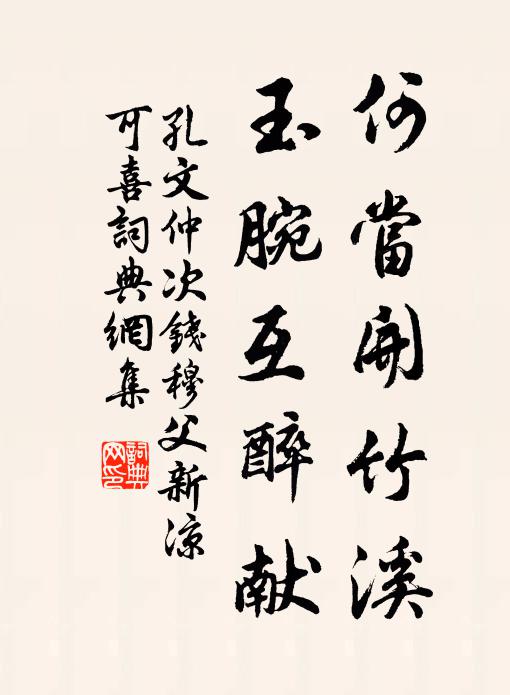 何當開竹溪
玉腕互醉献
孔文仲次錢穆父新涼
可喜詞典網集
詞典網印